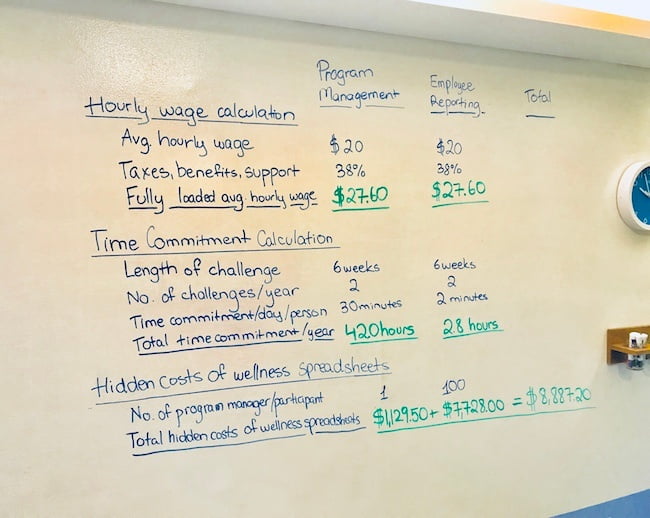 Program Management Employee Reporting Total
Hourly wage calculation
Avg. hourly wage $20 $20
Taxes, benefits, support 38% 38%
Fully loaded avg. hourly wage $27.60 $27.60
Time Commitment Calculation
Length of challenge 6weeks 6weeks
No. of challenges/year 2 2
Time commitment/day/person 30minutes 2 minutes
Total time commitment/year 420hours 2.8 hours
Hidden costs of wellness spreadsheets
No. of program manager/participant 1 100
Total hidden costs of wellness spreadsheets $1,129.50 + $7,728.00 = $8,887.20